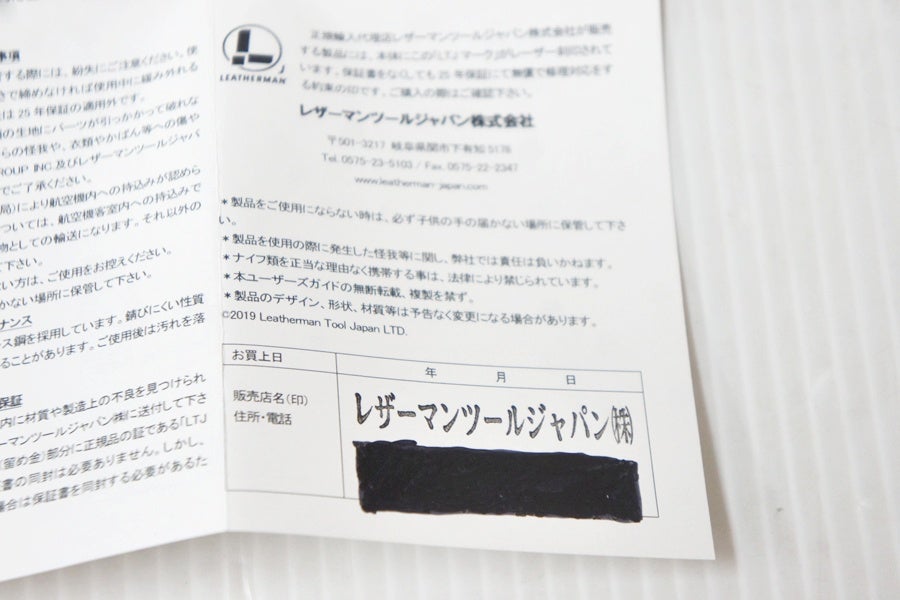 事項
する際には、紛失にご注意ください。使
さで締めなければ使用中に緩み外れる
は 25 年保証の適用外です。
の生地にパーツが引っかかって破れな
らの怪我や、衣類やかばん等への傷や
ROUP INC.及びレザーマンツールジャパ
でご了承ください。
局)により航空機内への持込みが認めら
ついては、航空機客室内への持込みで
物としての輸送になります。それ以外の
て下さい。
い方は、ご使用をお控えください。
かない場所に保管して下さい。
ナンス
ス鋼を採用しています。錆びにくい性質
ることがあります。ご使用後は汚れを落
保証
内に材質や製造上の不良を見つけられ
ーマンツールジャパン㈱に送付して下さ
(留め金)部分に正規品の証である「LTJ
証書の同封は必要ありません。しかし、
場合は保証書を同封する必要があるた
LEATHERMAN
正規輸入代理店レザーマンツールジャパン株式会社が販売
する製品には、本体にこの「LTJ マーク」がレーザー刻印されて
います。保証書をなくしても 25 年保証にて無償で修理対応をす
る約束の印です。ご購入の際はご確認下さい。
レザーマンツールジャパン株式会社
〒501-3217 岐阜県関市下有知 5178
Tel. 0575-23-5103 / Fax. 0575-22-2347
www.leatherman-japan.com
* 製品をご使用にならない時は、必ず子供の手の届かない場所に保管して下さ
い。
* 製品を使用の際に発生した怪我等に関し、弊社では責任は負いかねます。
* ナイフ類を正当な理由なく携帯する事は、法律により禁じられています。
* 本ユーザーズガイドの無断転載、複製を禁ず。
* 製品のデザイン、形状、材質等は予告なく変更になる場合があります。
©2019 Leatherman Tool Japan LTD.
お買上日 年 月 日
販売店名(印)
住所・電話
レザーマンツールジャパン㈱